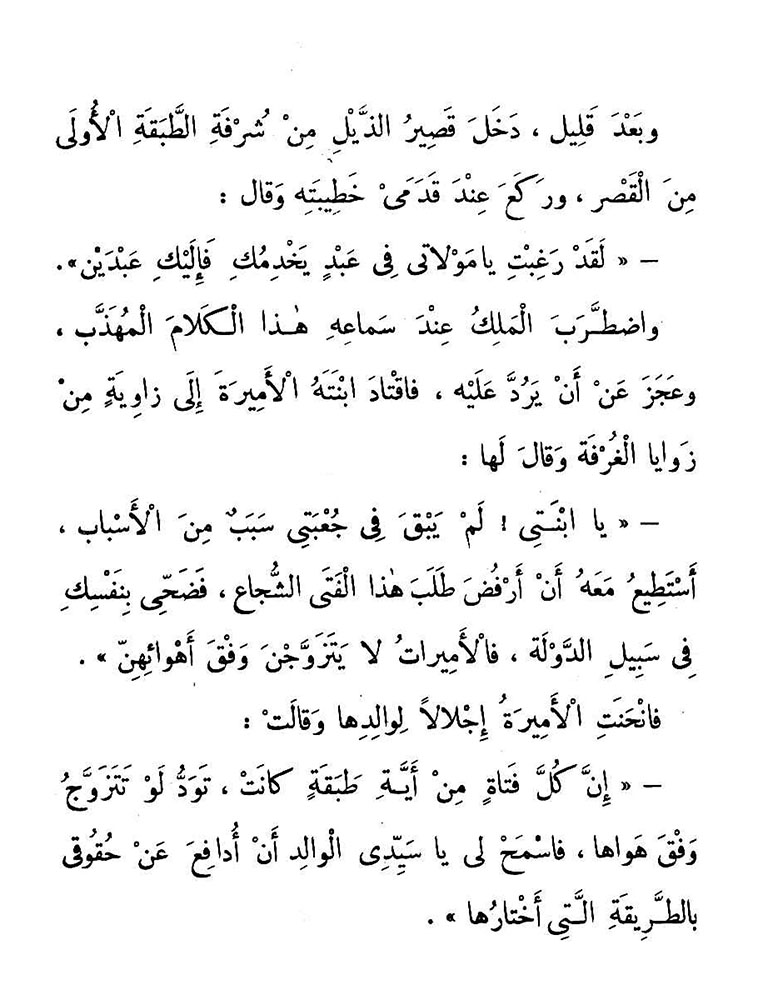 وبَعْدَ قَلِيل ، دَخَلَ قَصِيرُ الذَّيْلِ مِنْ شُرْفَةِ الطَّبَقَةِ الْأُولَى
مِنَ الْقَصْر ، ورَكَعَ عِنْدَ قَدَمَىْ خَطِيبَتِه وَقال :
– « لَقَدْ رَغِبْتِ يا مَوْلاتى فِى عَبْدٍ يَخْدِمُكِ فَإِلَيْكِ عَبْدَيْن» .
واضطَّرَبَ الْمَلِكُ عِنْدَ سَماعِهِ هٰذا الْكَلامَ الْمُهَذَّب ،
وعَجَزَ عَنْ أَنْ يَرُدَّ عَلَيْه ، فاقْتادَ ابْنَتَهُ الْأَمِيرَةَ إِلَى زاوِيَةٍ مِنْ
زَوايا الْغُرْفَة وَقالَ لَها :
– « يا ابْنَتِى ! لَمْ يَبْقَ فِى جُعْبَتِى سَبَبٌ مِنَ الْأَسْباب ،
أَسْتَطِيعُ مَعَهُ أَنْ أَرْفُضَ طَلَبَ هٰذا الْفَتَى الشُّجاع ، فَضَحِّى بِنَفْسِكِ
فِى سَبِيلِ الدَّوْلَة ، فالْأَمِيراتُ لا يَتَزَوَّجْنَ وَفْقَ أَهْوائِهِنّ » .
فانْحَنَتِ الْأَمِيرَةُ إِجْلالاً لِوالِدِها وَقالَتْ :
– « إِنَّ كُلَّ فَتاةٍ مِنْ أَيَّةِ طَبَقَةٍ كانَتْ ، تَوَدُّ لَوْ تَتَزَوَّجُ
وَفْقَ هَواها ، فاسْمَحْ لى يا سَيِّدِى الْوالِد أَنْ أُدافِعَ عَنْ حُقُوقِى
بالطَّرِيقَةِ الَّتِى أَخْتارُها » .